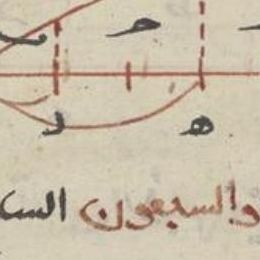 ح
د ه
والسبعون السا